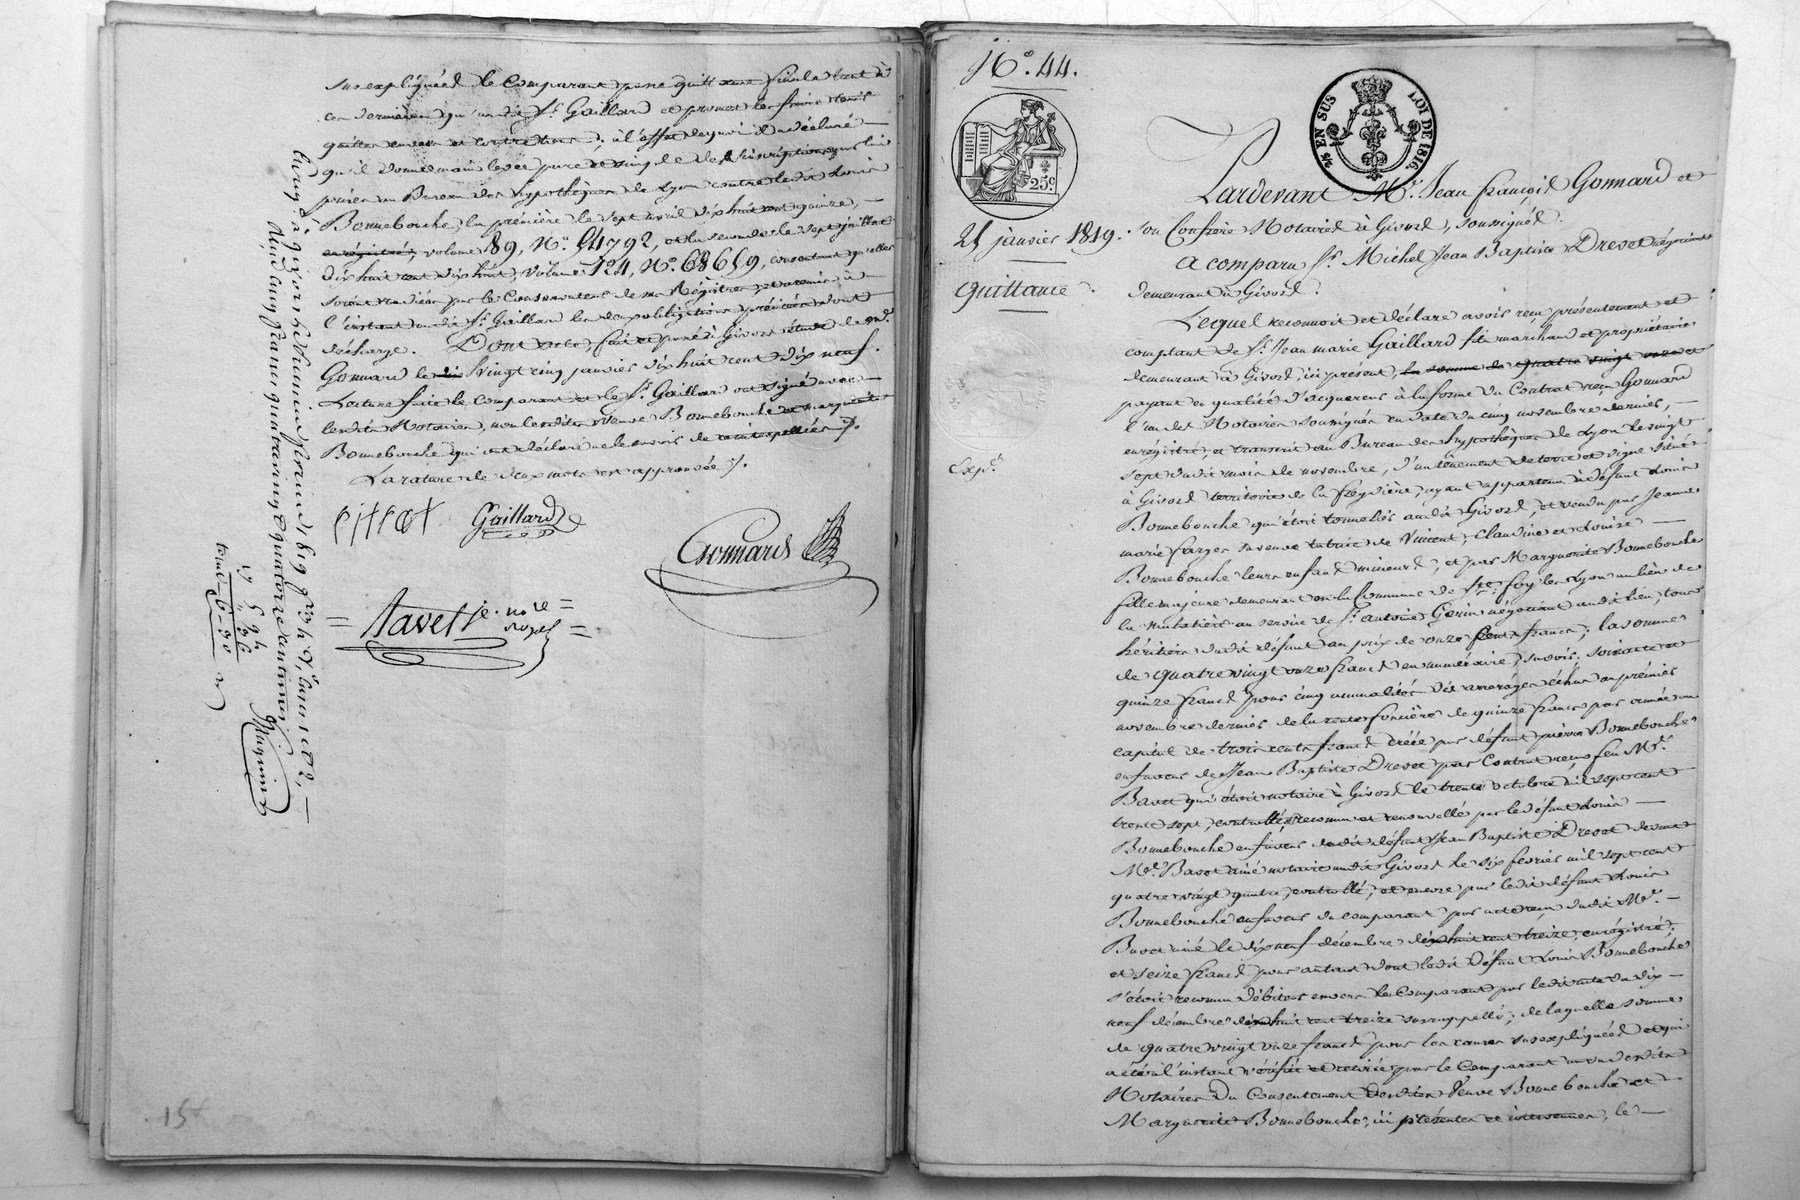 susexpliquées le comparant passe quittance finale tant à
ces derniers qu'audit Sr. Gaillard et promet les faire tenir
quittes envers et contre tous; à l'effet de quoi il a déclaré
qu'il donne main levée pure et simple des inscriptions par lui
prises au Bureau des hypothèques de Lyon contre ledit Louis
Bonnebouche, la première le sept avril dix huit cent quinze,
volume 89, No. 54792, et la seconde le sept juillet
dix huit cent dix huit, volume 124, No. 68659, consentant qu'elles
soient rayées par le Conservateur de ses Régistres, et a remis à
l'instant audit Sr. Gaillard les
décharge. Dont acte, fait et passé à Givors étude de Me.
Gonnard le vingt cinq janvier dix huit cent dix neuf.
Lecture faite le comparant et le Sr. Gaillard ont signé avec
lesdits Notaires, non lesdites veuve Bonnebouche et Marguerite
Bonnebouche qui ont déclaré ne le savoir de ce interpellées ./.
La rature de deux mots est approuvée ./.
Gaillard
Gonnard
Tavet je. nore
royal
154
No. 44.
25c
25 EN SUS LOI DE 1816.
25 janvier 1819.
Quittance.
Expé.
Pardevant Me. Jean François Gonnard et
son Confrère Notaires à Givors, soussignés.
A comparu Sr. Michel Jean Baptiste Drevet négociant
demeurant à Givors.
Lequel reconnoit et déclare avoir reçu présentement et
comptant de Sr. Jean marie Gaillard fils marchand et propriétaire
demeurant à Givors, ici présent, la somme de quatre vingt onze et
payant en qualité d'acquereur à la forme du Contrat reçu Gonnard
l'un des Notaires soussignés en date du cinq novembre dernier,
enrégistré, et transcrit au Bureau des hypothèques de Lyon le vingt
sept dudit mois de novembre, d'un tènement de terre et vigne situé
à Givors territoire de la Freydière, ayant appartenu à défunt Louis
Bonnebouche qui étoit tonnelier audit Givors, et vendu par Jeanne
marie Farges sa veuve tutrice de Vincent, Claudine et Louise
Bonnebouche leurs enfans mineurs, et par Marguerite Bonnebouche
fille majeure demeurant en la Commune de Ste. foy les Lyon au lieu de
la Mulatière au service de Sr. antoine Gerin négociant audit lieu, tous
héritiers dudit défunt au prix de onze cent francs; la somme
de quatre vingt onze francs en numéraire, savoir: soixante et
quinze francs pour cinq annualités des arrérages échus au premier
novembre dernier de la rente foncière de quinze francs par année au
capital de trois cents francs créée par défunt pierre Bonnebouche
en faveur de Jean Baptiste Drevet par Contrat reçu feu Me.
Bavet qui étoit notaire à Givors le trente octobre mil sept cent
trente sept, controllé, reconnue et renouvellée par le défunt Louis
Bonnebouche en faveur dudit défunt Jean Baptiste Drevet devant
Me. Bavet ainé notaire audit Givors le six fevrier mil sept cent
quatre vingt quatre, controllé, et encore par ledit défunt Louis
Bonnebouche en faveur du comparant par acte reçu dudit Me.
Bavet ainé le dix neuf décembre dix huit cent treize, enrégistré;
et seize francs pour autant dont ledit Défunt Louis Bonnebouche
s'étoit reconnu débiteur envers le Comparant par ledit acte du dix
neuf décembre dix huit cent treize susrappellé; de laquelle somme
de quatre vingt onze francs pour les causes susexpliquées et qui
a été à l'instant vérifiée et retirée par le Comparant au vu desdits
Notaires Du Consentement desdites Veuve Bonnebouche et
Marguerite Bonnebouche, ici présentes et intervenues, le